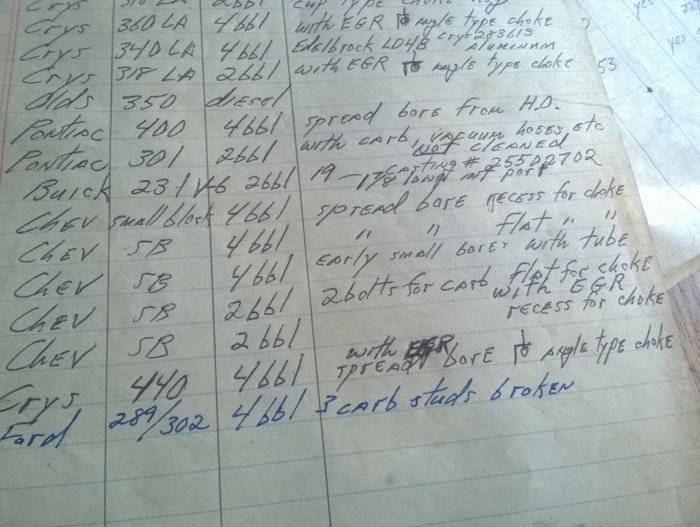 Crys 318 LA 2bbl cup type choke
Crys 360 LA 4bbl with EGR angle type choke
Crys 340 LA 4bbl Edelbrock LD4B Crys 283613 Aluminum
Crys 318 LA 2bbl with EGR angle type choke 53
Olds 350 diesel
Pontiac 400 4bbl spread bore from H.O.
Pontiac 301 2bbl with carb, vacuum hoses, etc
not cleaned
Buick 231 V-6 2bbl casting # 25502702
19 - 1 7/8 long int port
Chev small block 4bbl spread bore recess for choke
Chev SB 4bbl " " flat " "
Chev SB 4bbl early small bores with tube
Chev SB 2bbl 2 bolts for carb flat for choke
Chev SB 2bbl with EGR
recess for choke
with EGR
Crys 440 4bbl spread bore angle type choke
Ford 289/302 4bbl 3 carb studs broken
yes
yes